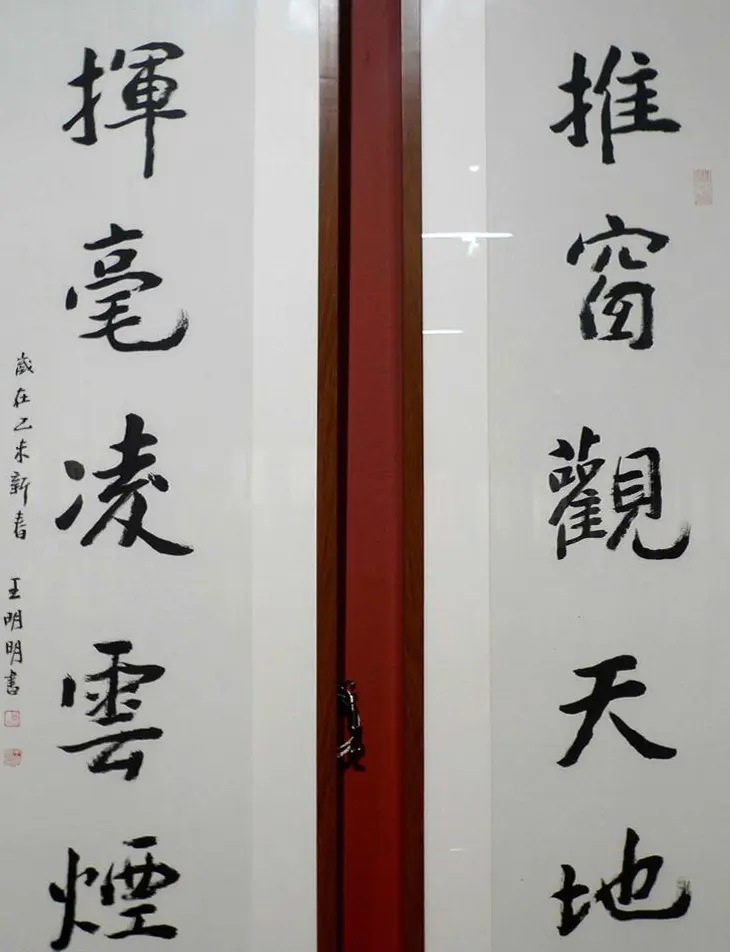 推窗觀天地
揮毫凌雲煙
歲在乙未新春 王明明書